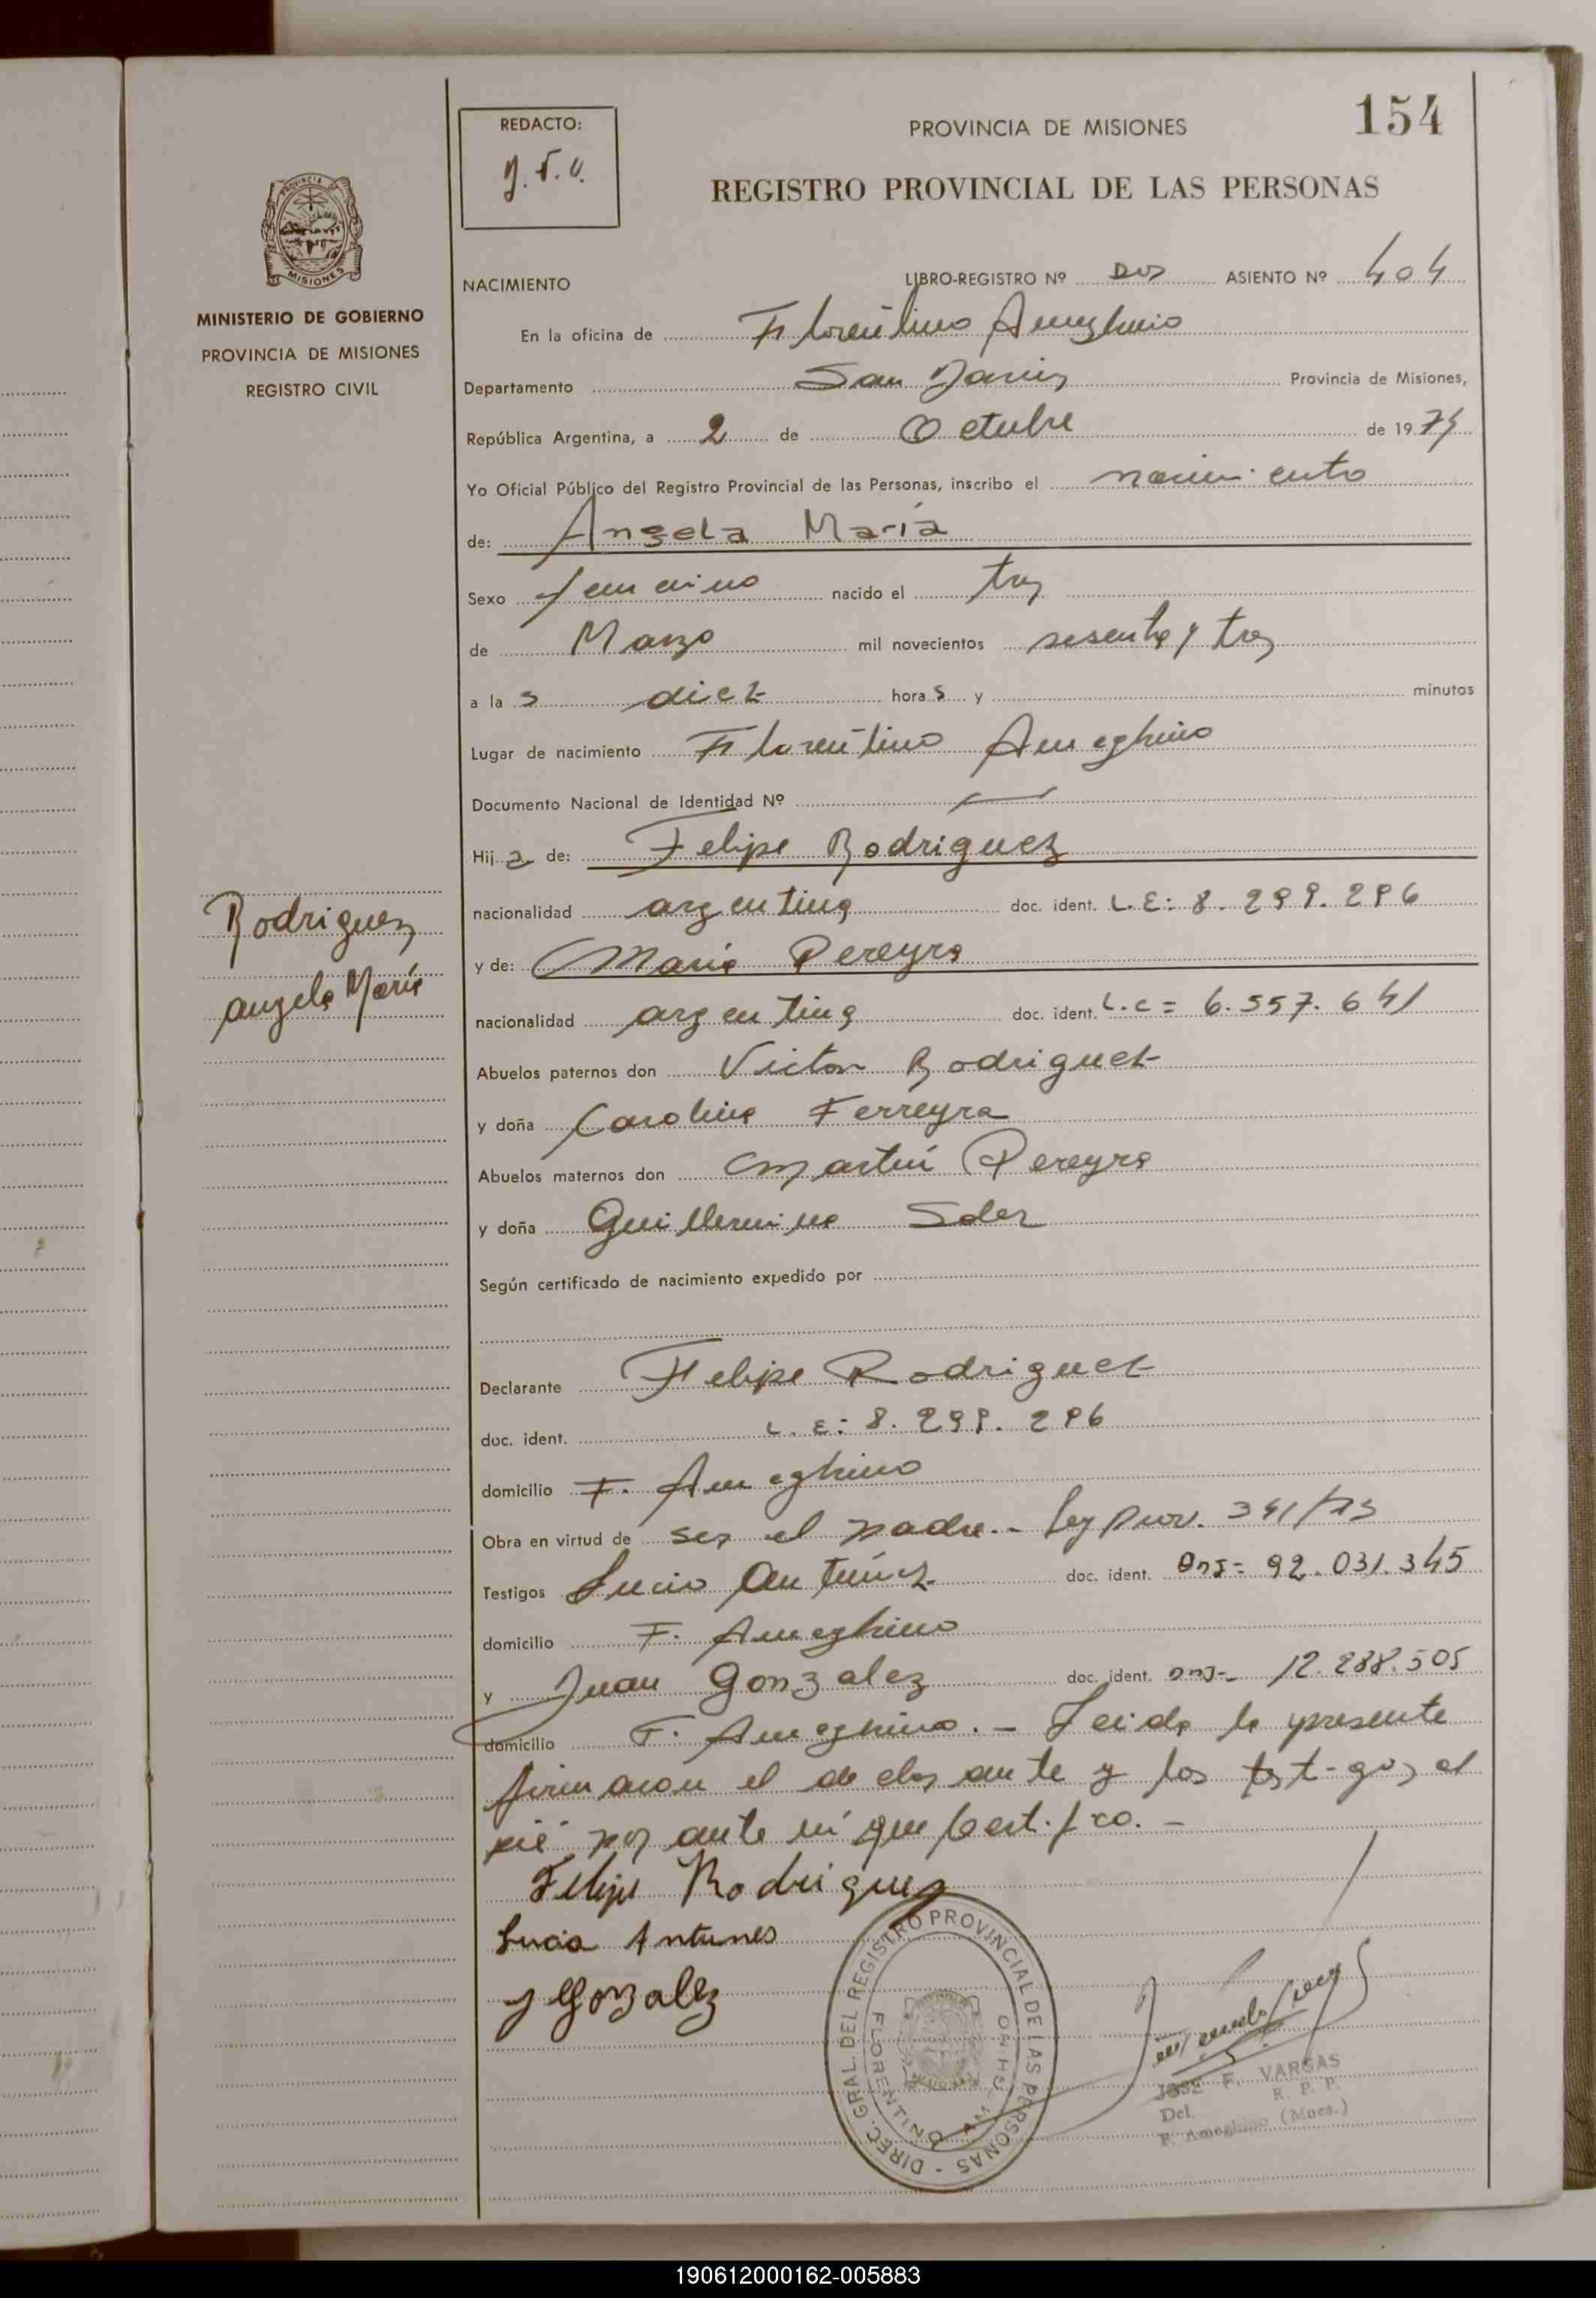 154
REDACTO:
J.F.V.
PROVINCIA DE MISIONES
REGISTRO PROVINCIAL DE LAS PERSONAS
PROVINCIA
MISIONES
MINISTERIO DE GOBIERNO
PROVINCIA DE MISIONES
REGISTRO CIVIL
NACIMIENTO LIBRO-REGISTRO Nº Dos ASIENTO Nº 404
En la oficina de Florentino Ameghino
Departamento San Javier Provincia de Misiones,
República Argentina, a 2 de Octubre de 1974
Yo Oficial Público del Registro Provincial de las Personas, inscribo el nacimiento
de: Angela María
Sexo femenino nacido el tres
de Marzo mil novecientos sesenta y tres
a la s diez hora s y minutos
Lugar de nacimiento Florentino Ameghino
Documento Nacional de Identidad Nº —
Hij a de: Felipe Rodriguez
nacionalidad argentina doc. ident. L.E: 8.299.296
y de: Maria Pereyra
nacionalidad argentina doc. ident. L.C= 6.557.641
Rodriguez
Angela María
Abuelos paternos don Victor Rodriguez
y doña Carolina Ferreyra
Abuelos maternos don Martín Pereyra
y doña Guillermina
Según certificado de nacimiento expedido por
Declarante Felipe Rodriguez
doc. ident. L.E: 8.299.296
domicilio F. Ameghino
Obra en virtud de ser el padre.- Ley Prov.
Testigos Lucio Antúnez doc. ident. DNI= 92.031.345
domicilio F. Ameghino
y Juan Gonzalez doc. ident. DNI- 12.288.505
domicilio F. Ameghino.- Leida la presente
firmaron el declarante y los testigos al
pié por ante mí que Certifico.-
Felipe Rodriguez
Lucio Antunes
J Gonzalez
DIREC. GRAL. DEL REGISTRO PROVINCIAL DE LAS PERSONAS -
FLORENTINO AMEGHINO
JOSE F. VARGAS
Del. R. P. P.
F. Ameghino (Mnes.)
190612000162-005883